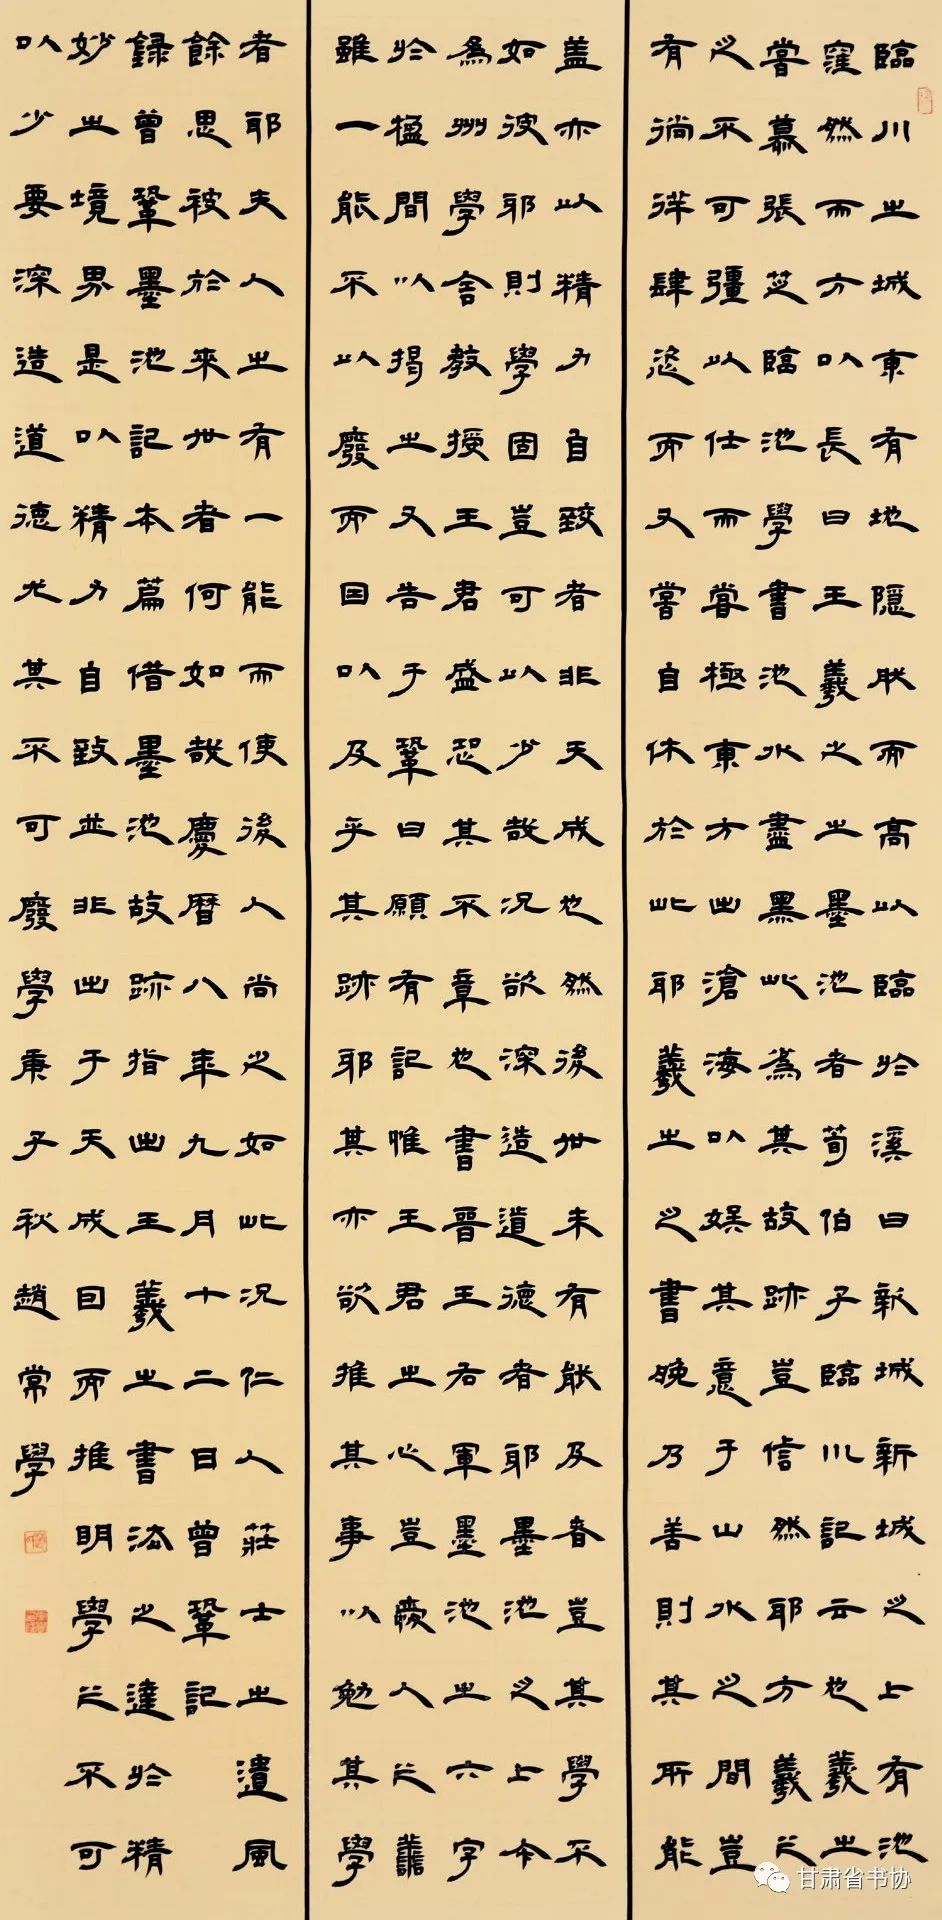 臨川之城東有地隱然而高以臨於溪曰新城新城之上有池
窪然而方以長曰王羲之之墨池者荀伯子臨川記云也羲之
嘗慕張芝臨池學書池水盡黑此為其故跡豈信然耶方羲之
之不可彊以仕而嘗極東方出滄海以娛其意于山水之間豈
有徜徉肆恣而又嘗自休於此耶羲之之書晚乃善則其所能
蓋亦以精力自致者非天成也然後世未有能及者豈其學不
如彼耶則學固豈可以少哉況欲深造道德者耶墨池之上今
為州學舍教授王君盛恐其不章也書晉王右軍墨池之六字
於楹間以揭之又告于鞏曰願有記惟王君之心豈愛人之善
雖一能不以廢而因以及乎其跡耶其亦欲推其事以勉其學
者耶夫人之有一能而使後人尚之如此況仁人莊士之遺風
餘思被於來世者何如哉慶曆八年九月十二日曾鞏記
錄曾鞏墨池記本篇借墨池故跡指出王羲之書法之達於精
妙之境界是以精力自致並非出于天成因而推明學之不可
以少要深造道德尤其不可廢學庚子秋趙常學
甘肃省书协